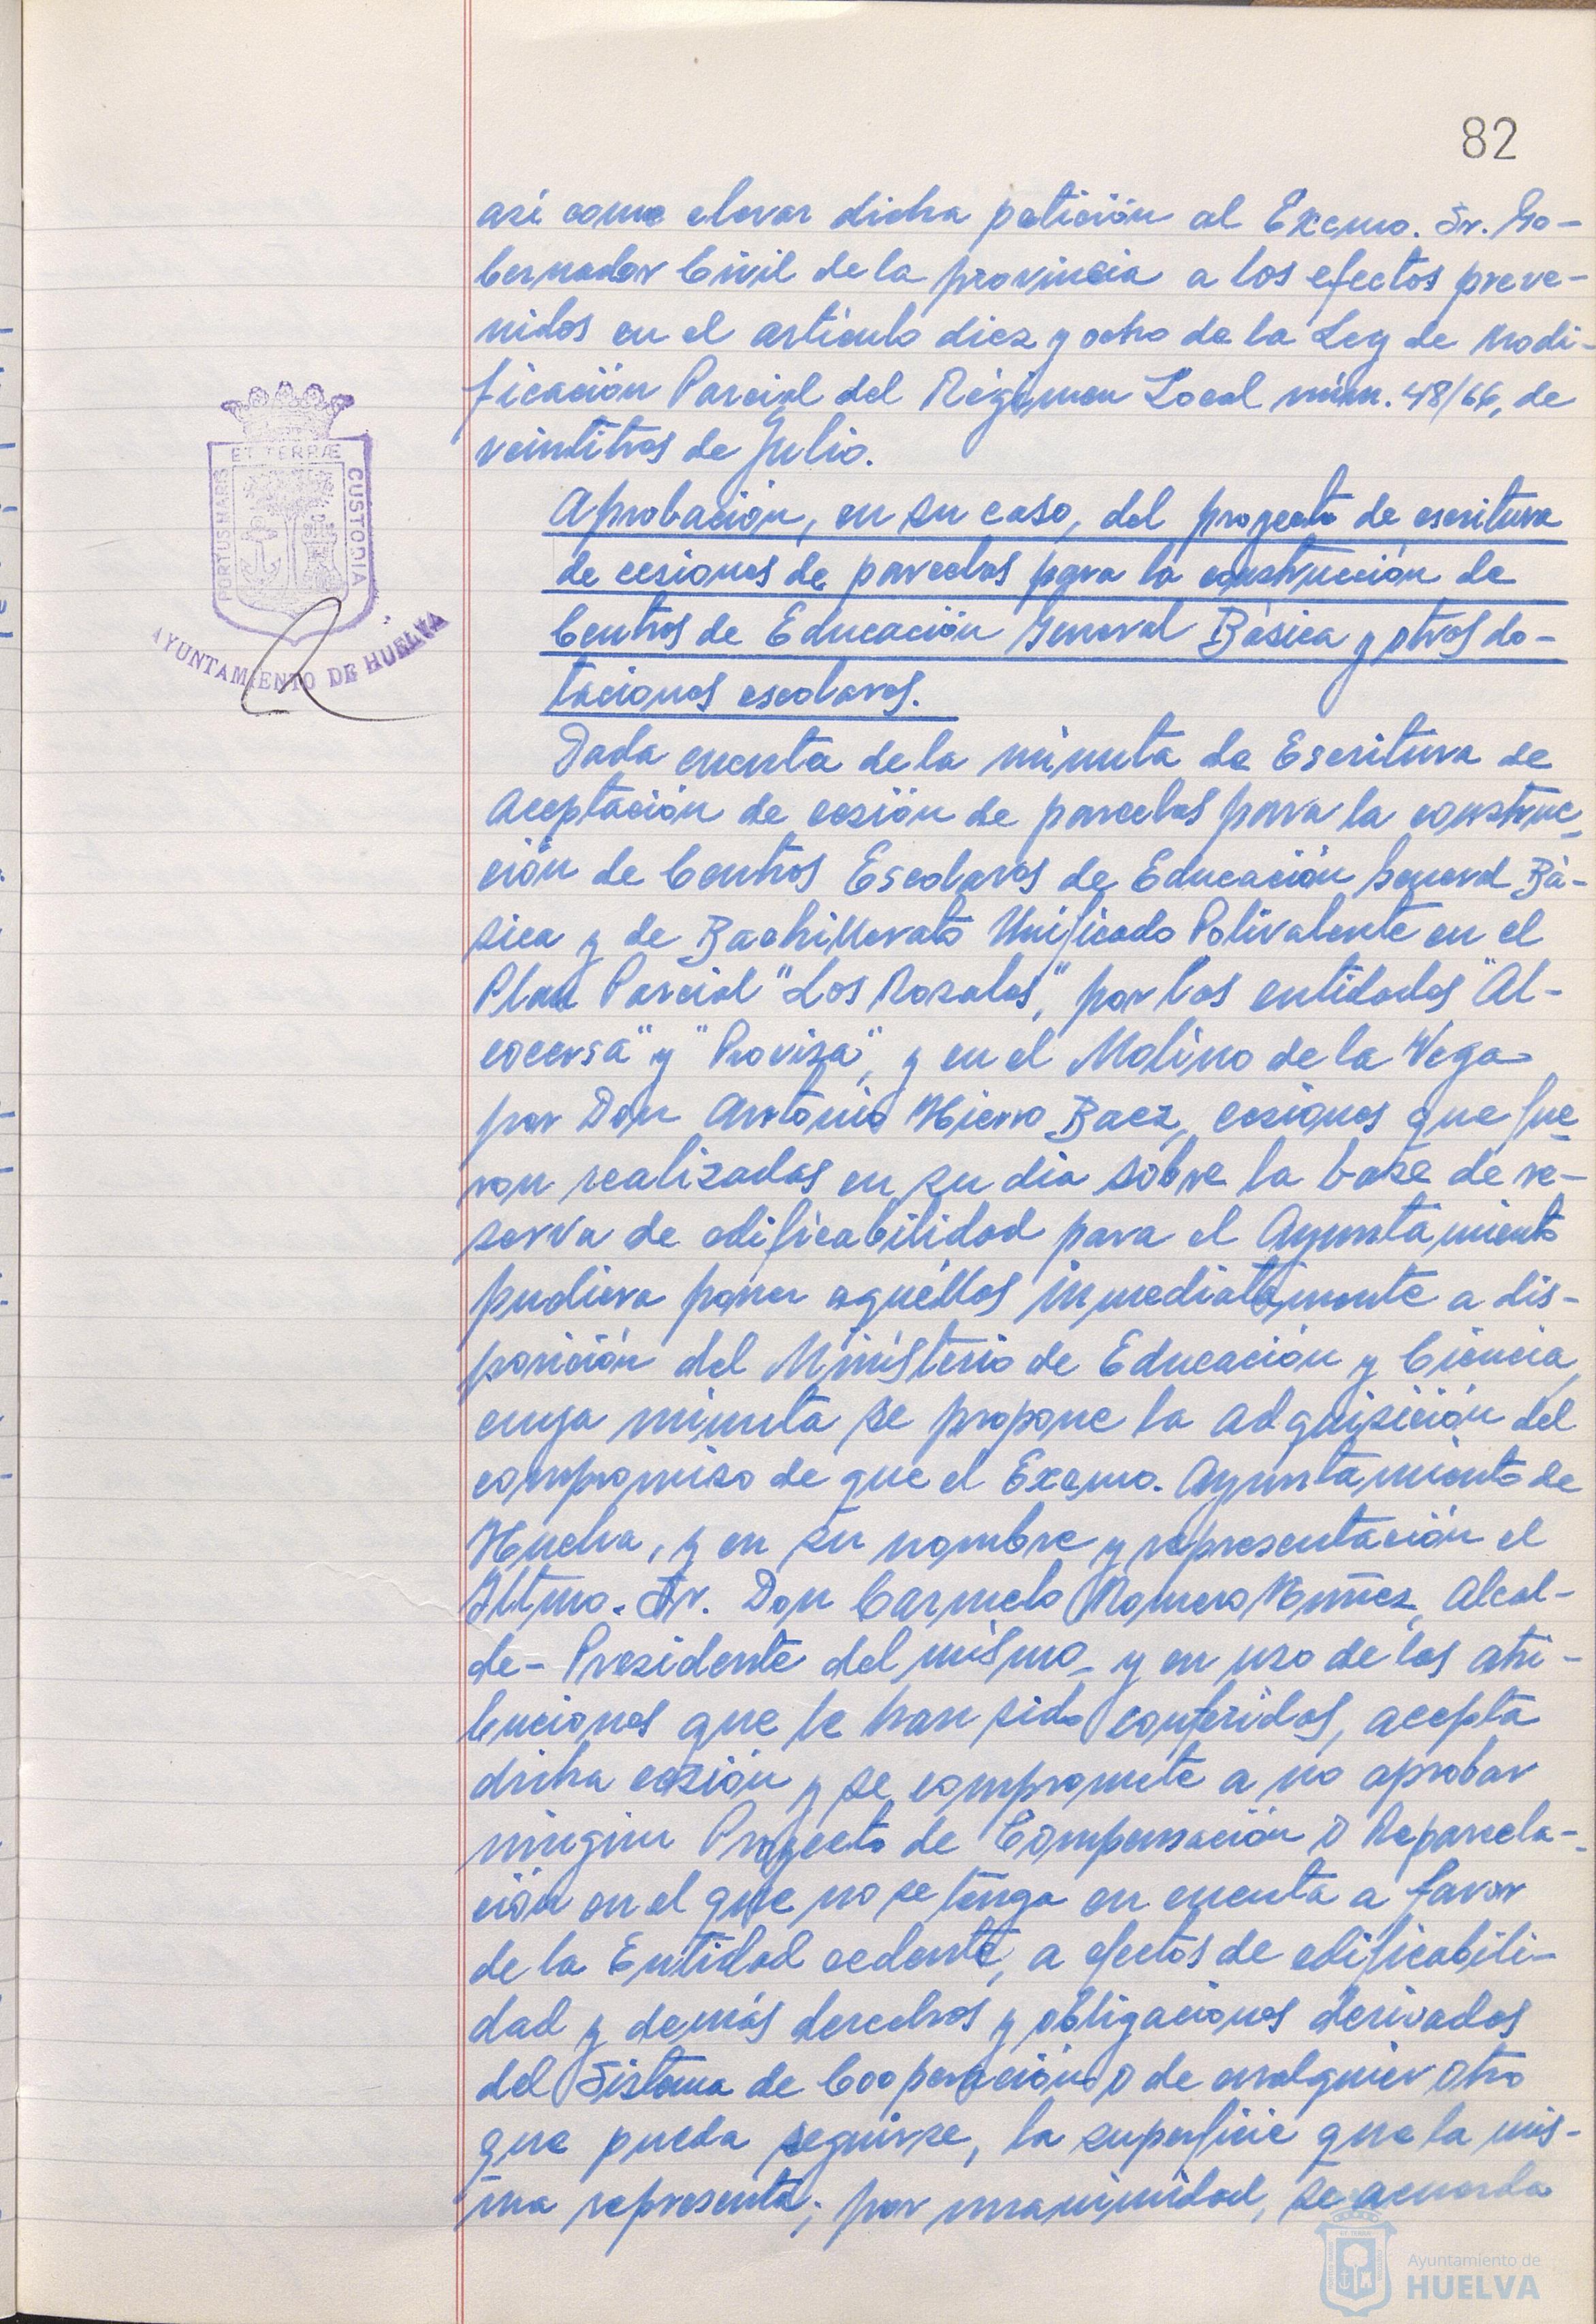 82
así como elevar dicha petición al Excmo. Sr. Go-
bernador Civil de la provincia a los efectos preve-
nidos en el artículo diez y ocho de la Ley de Modi-
ficación Parcial del Régimen Local núm. 48/66, de
veintitres de Julio.
Aprobación, en su caso, del proyecto de escritura
de cesiones de parcelas para la construcción de
Centros de Educación General Básica y otras do-
taciones escolares.
Dada cuenta de la minuta de Escritura de
Aceptación de cesión de parcelas para la construc-
ción de Centros Escolares de Educación General Bá-
sica y de Bachillerato Unificado Polivalente en el
Plan Parcial "Los Rosales", por las entidades "Al-
cocersa" y "Provisa", y en el Molino de la Vega
por Don Antonio Hierro Baez, cesiones que fue-
ron realizadas en su dia sobre la base de re-
serva de edificabilidad para el Ayuntamiento
pudiera poner aquéllas inmediatamente a dis-
posición del Ministerio de Educación y Ciencia,
cuya minuta se propone la adquisición del
compromiso de que el Excmo. Ayuntamiento de
Huelva, y en su nombre y representación el
Iltmo. Sr. Don Carmelo Romero Núñez, Alcal-
de-Presidente del mismo y en uso de las atri-
buciones que le han sido conferidas, acepta
dicha cesión y se compromete a no aprobar
ningún Proyecto de Compensación o Reparcela-
ción en el que no se tenga en cuenta a favor
de la Entidad cedente, a efectos de edificabili-
dad y demás derechos y obligaciones derivados
del Sistema de Cooperación o de cualquier otro
que pueda seguirse, la superficie que la mis-
ma representa; por unanimidad, se acuerda
ET TERRÆ
PORTUS MARIS
CUSTODIA
AYUNTAMIENTO DE HUELVA
Ayuntamiento de
HUELVA